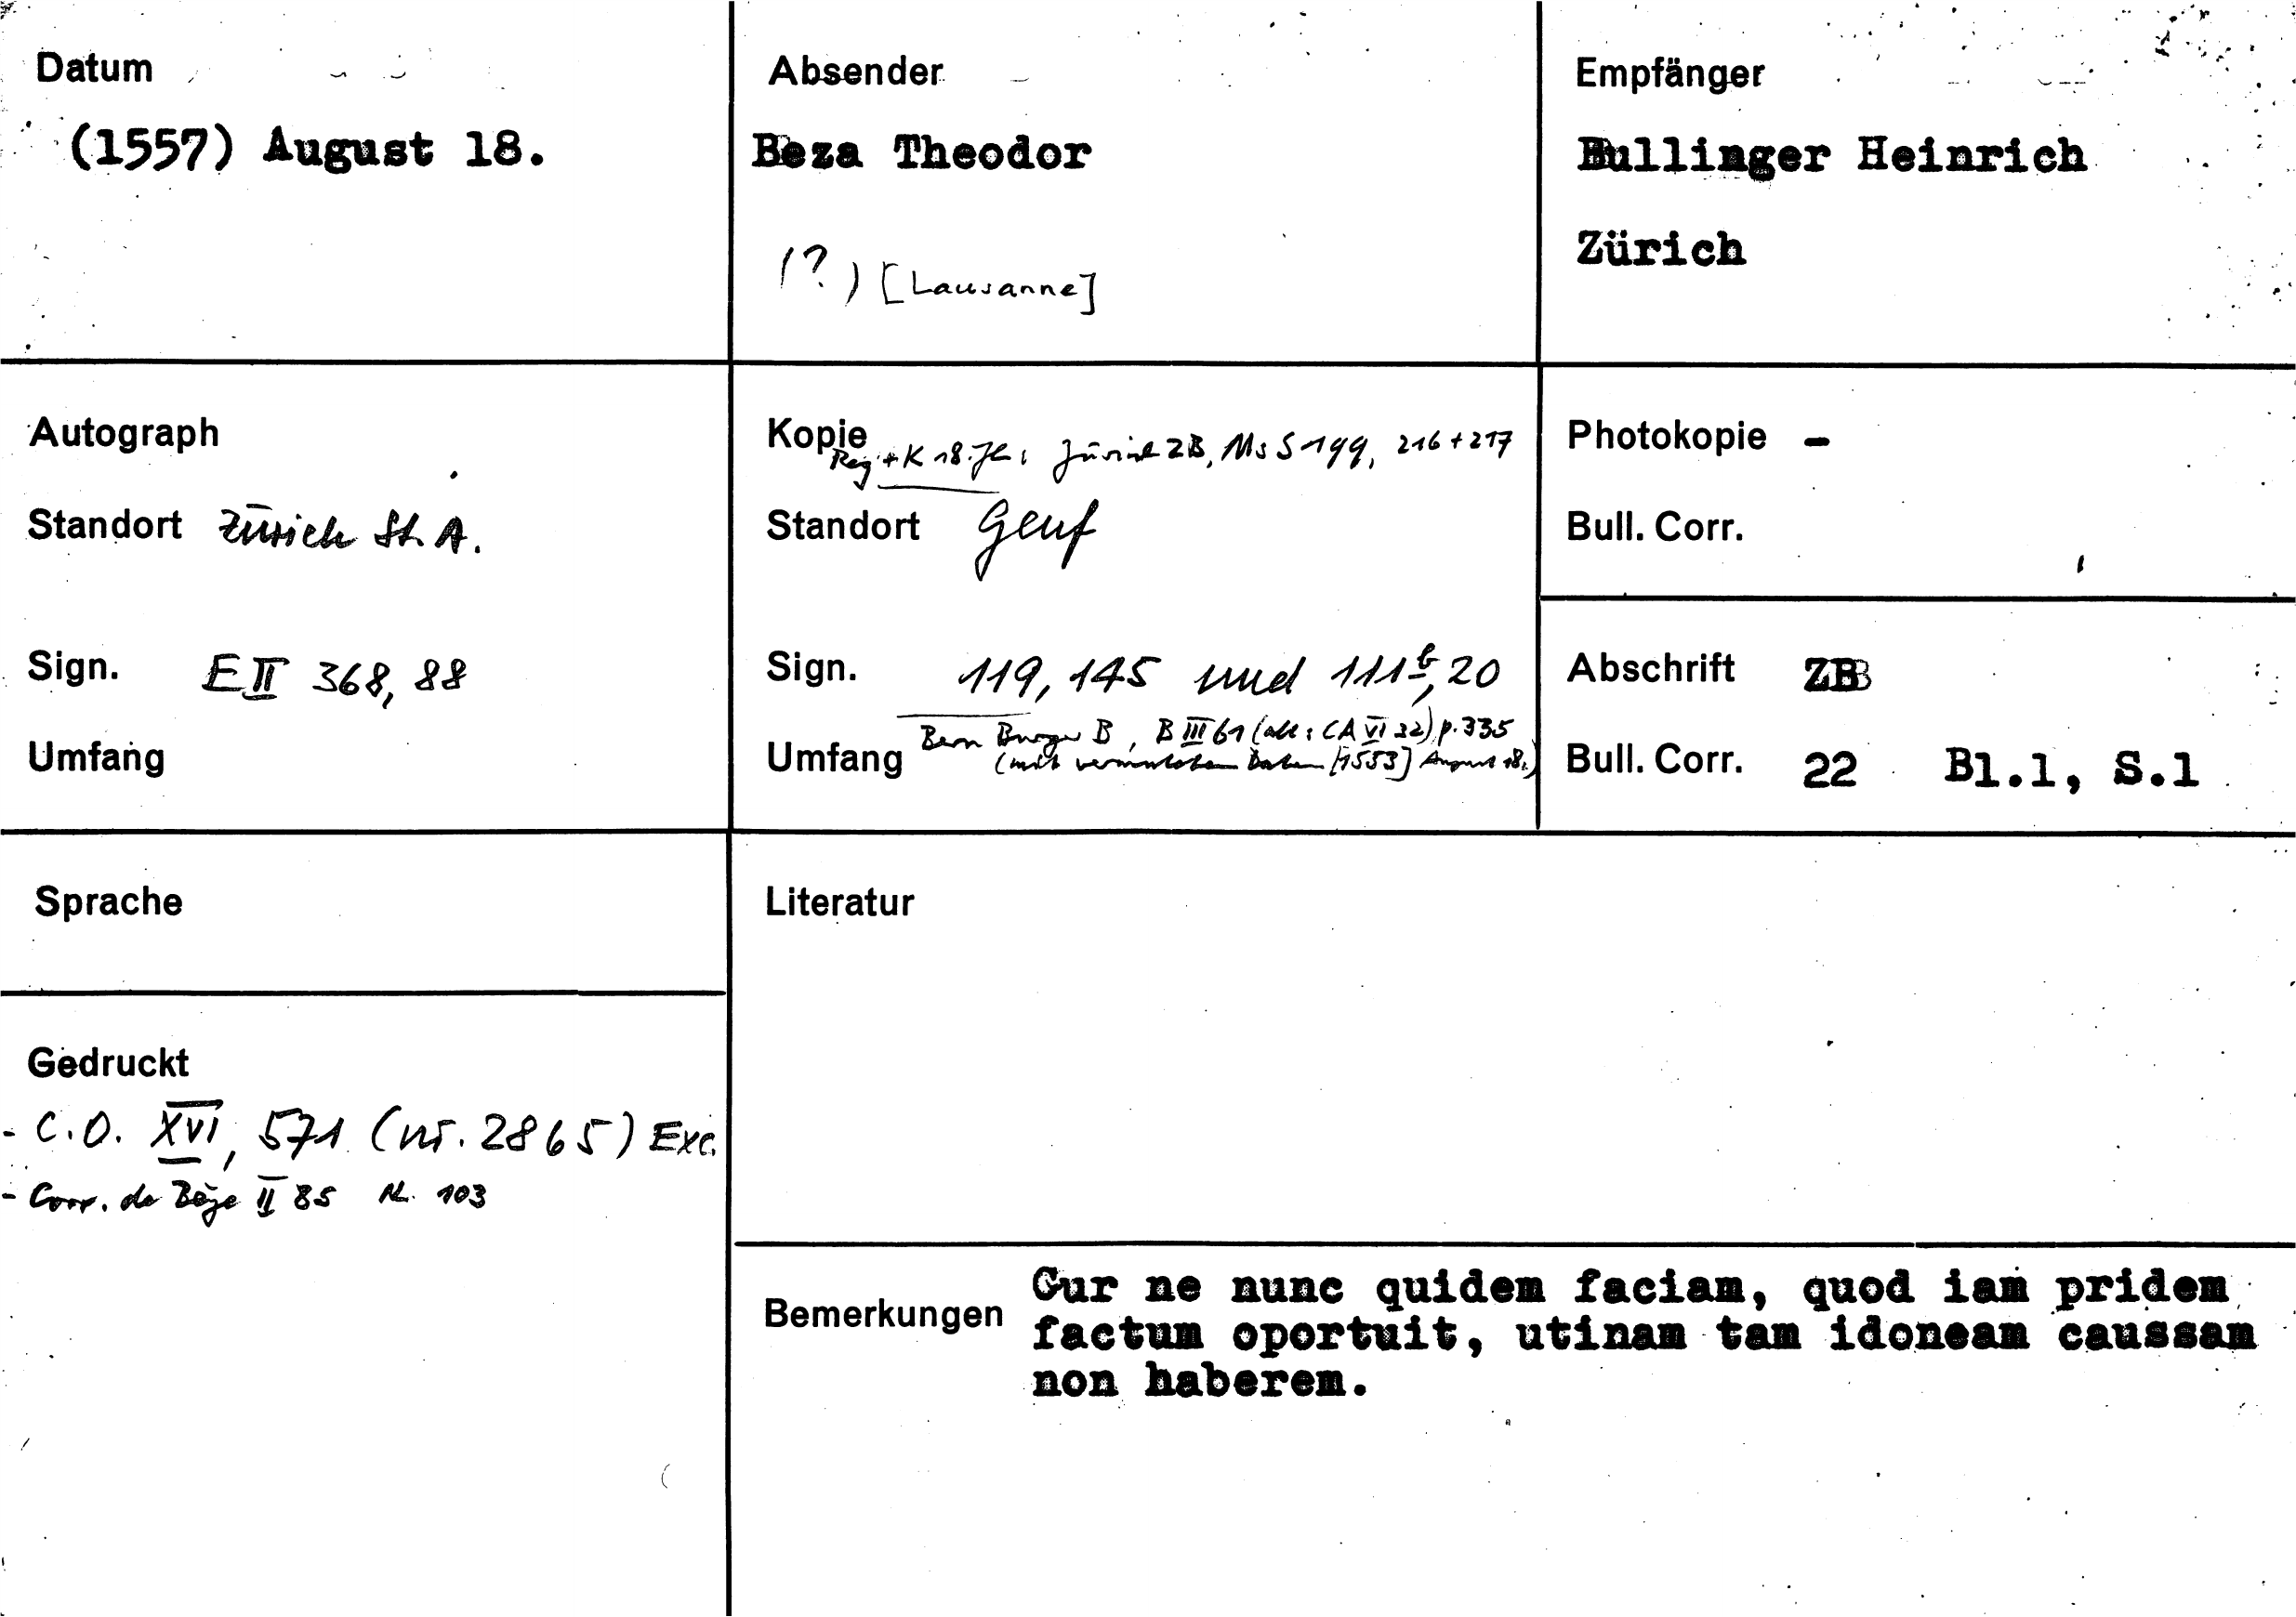 Datum
(1557) August 18.
Absender
Beza Theodor
(?) [Lausanne]
Empfänger
Bullinger Heinrich
Zürich
Autograph
Standort Zürich St. A.
Sign. E II 368, 88
Umfang
Kopie
Reg + K 18. Jh: Zürich ZB, Ms S 199, 216 + 217
Standort Genf
Sign. 119, 145 und 111b, 20
Bern Burger B, B III 61 (alt: CA VI 22) p. 335
Umfang (mit vermutetem Datum [1553] August 18.)
Photokopie -
Bull. Corr.
Abschrift ZB
Bull. Corr. 22 Bl.1, S.1
Sprache
Gedruckt
- C.O. XVI, 571 (nr. 2865) Exc.
- Corr. de Bèze II 85 N. 103
Literatur
Bemerkungen
Cur ne nunc quidem faciam, quod iam pridem
factum oportuit, utinam tam idoneam caussam
non haberem.